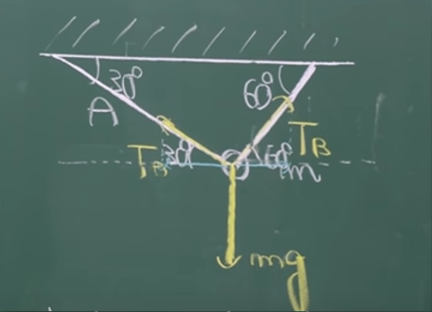 30° 60°
A
T_B T_B
30° 60° m
mg